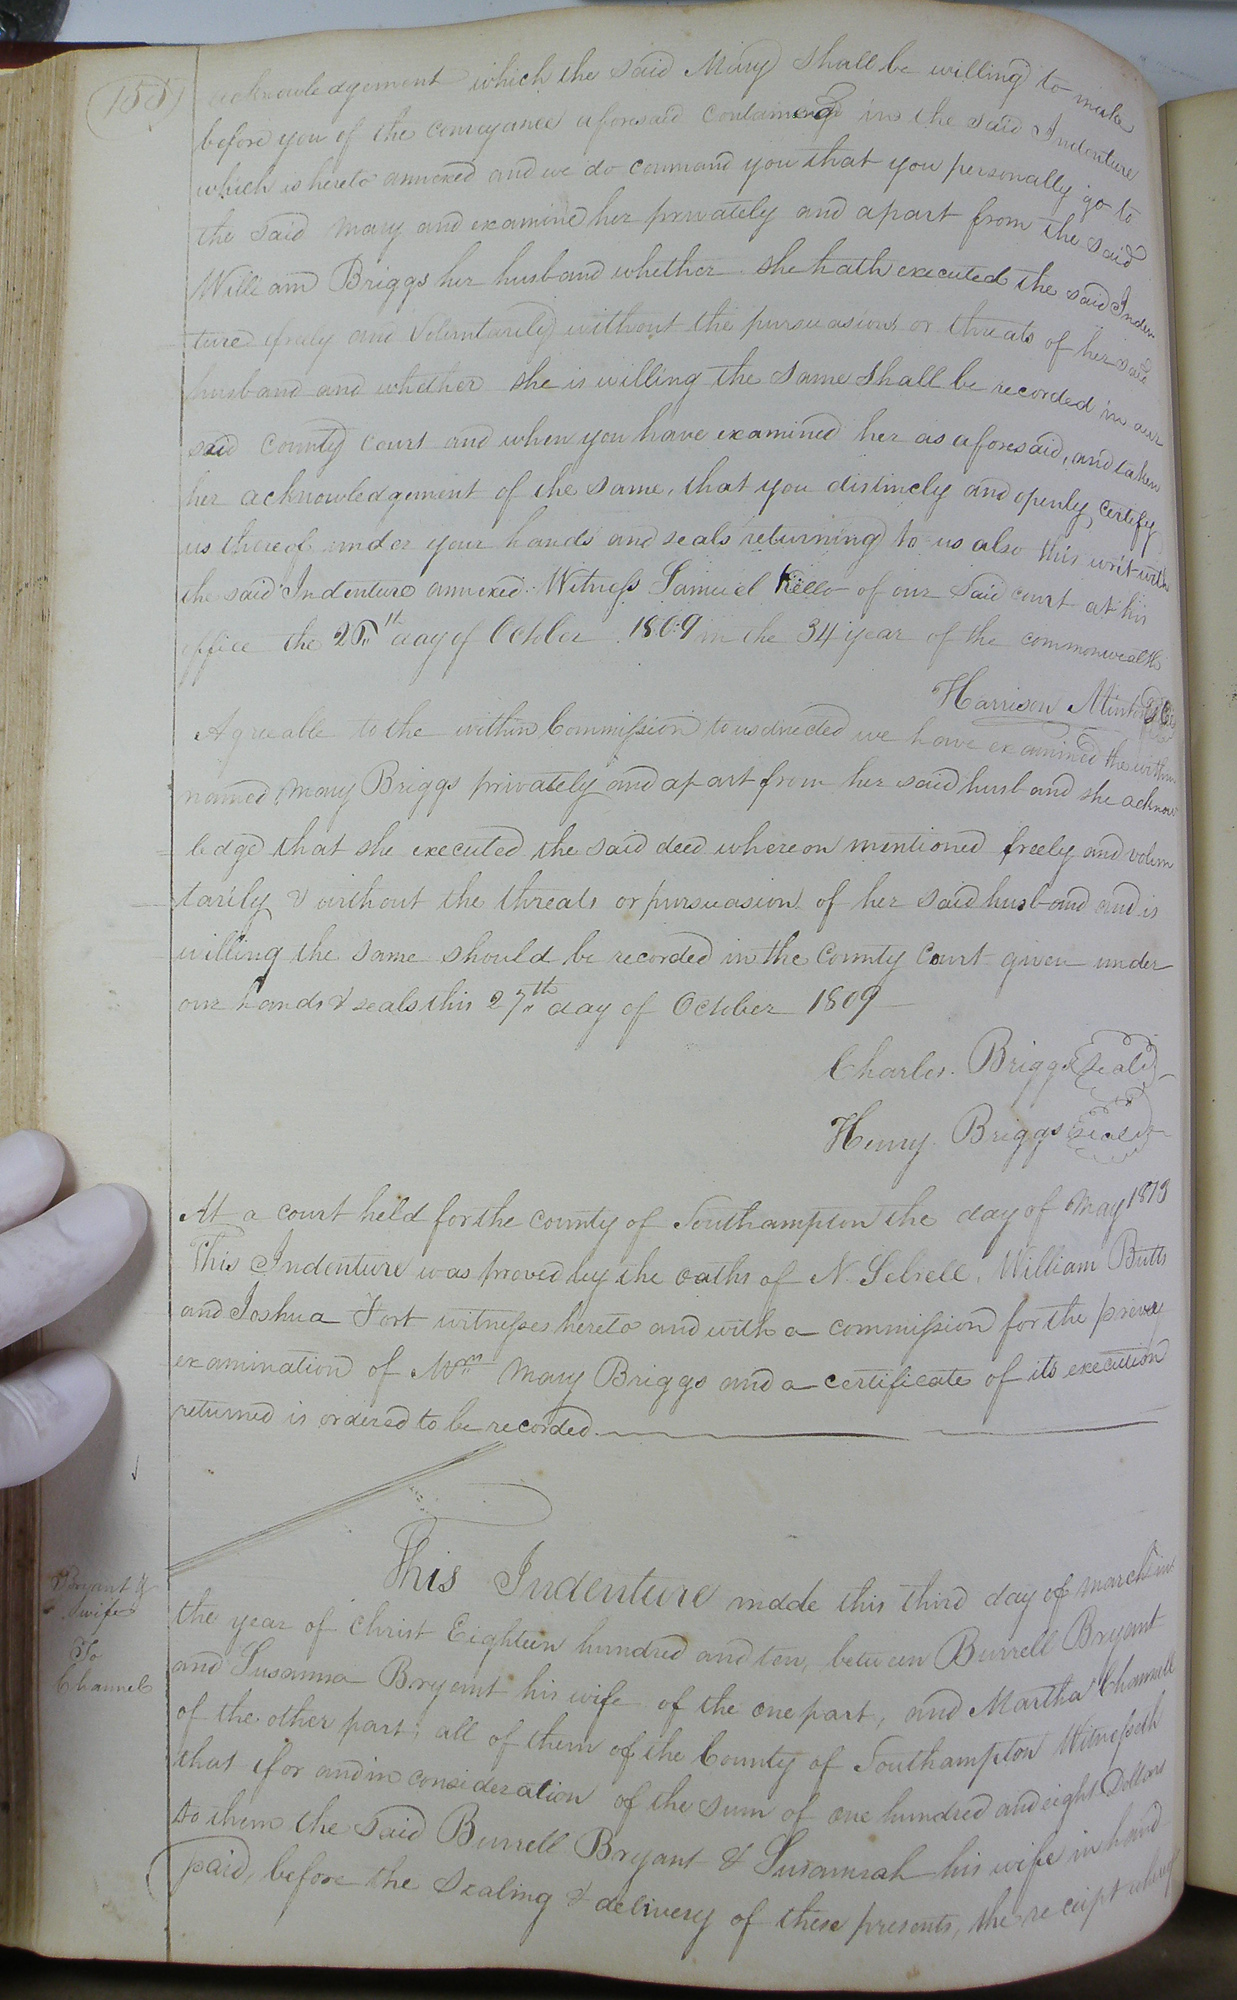 acknowledgement which the said Mary shall be willing to make
before you of the conveyance aforesaid contained in the said Indenture
which is hereto annexed and we do command you that you personally go to
the said Mary and examine her privately and apart from the said
William Briggs her husband whether she hath executed the said Inden
ture freely and voluntarily without the pursuasions or threats of her said
husband and whether she is willing the same shall be recorded in our
said County Court and when you have examined her as aforesaid, and taken
her acknowledgement of the same, that you distincly and openly certify
us thereof under your hands and seals returning to us also this writ with
the said Indenture annexed. Witness Samuel Kello of our said court at his
office the day of October 1809 in the 34 year of the commonwealth
Harrison
Agreeable to the within Commission to us directed we have examined the within
named Mary Briggs privately and apart from her said husband she acknow
ledge that she executed the said deed whereon mentioned freely and volun
tarily & without the threats or pursuasion of her said husband and is
willing the same should be recorded in the County Court given under
our hands & seals this 27th day of October 1809
Charles Briggs Seal
Henry Briggs Seal
At a court held for the county of Southampton the day of May 1813
This Indenture was proved by the oaths of N. Sebrell, William Butts
and Joshua Fort witnesses hereto and with a commission for the privey
examination of Mrs Mary Briggs and a certificate of its execution
returned is ordered to be recorded
Bryant &
wife
To
Channel
This Indenture made this third day of march in
the year of Christ Eighteen hundred and ten, between Burrell Bryant
and Susanna Bryant his wife of the one part, and Martha Channell
of the other part; all of them of the County of Southampton Witnesseth
that for and in consideration of the sum of one hundred and eight Dollars
to them the said Burrell Bryant & Susannah his wife in hand
paid, before the sealing & delivery of these presents, the receipt whereof